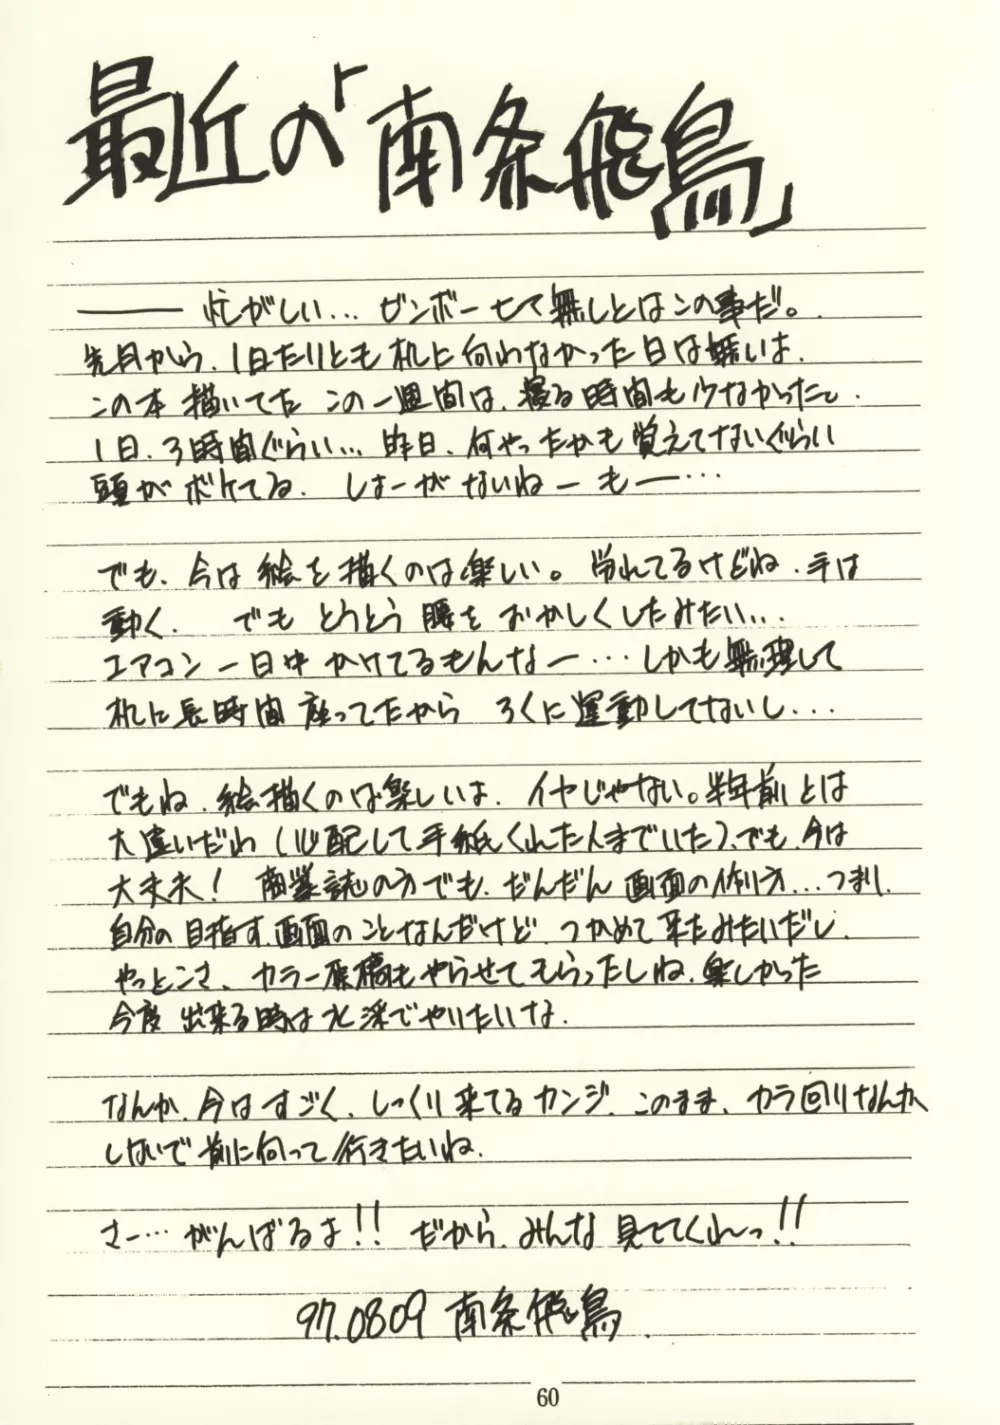 最近の「南条飛鳥」
―――忙がしい… ビンボー七て無しとはこの事だ。
先月から、1日たりとも机に向わなかった日は無いよ。
この本描いてた この一週間は、寝る時間も少なかったし。
1日、3時間ぐらい… 昨日、何やったかも覚えてないぐらい
頭がボケてる。 しょーがないねーもー…
でも、今は絵を描くのは楽しい。労れてるけどね、手は
動く。 でも とうとう 腰を おかしくしたみたい…
エアコン一日中かけてるもんなー… しかも無理して
机に長時間座ってたから ろくに運動してないし…
でもね、絵描くのは楽しいよ、イヤじゃない。半年前とは
大違いだね(心配して手紙くれた人までいた)、でも、今は
大丈夫! 商業誌の方でも、だんだん画面の作り方…つまり、
自分の目指す、画面のことなんだけど、つかめて来たみたいだし、
やっとこさ、カラー原稿もやらせてもらったしね、楽しかった
今度出来る時は水彩でやりたいな。
なんか、今はすごく、しっくり来てるカンジ、このまま、カラ回りなんか
しないで前に向って行きたいね。
さー…がんばるよ!! だから、みんな見ててくれっ!!
97.0809 南条飛鳥
60